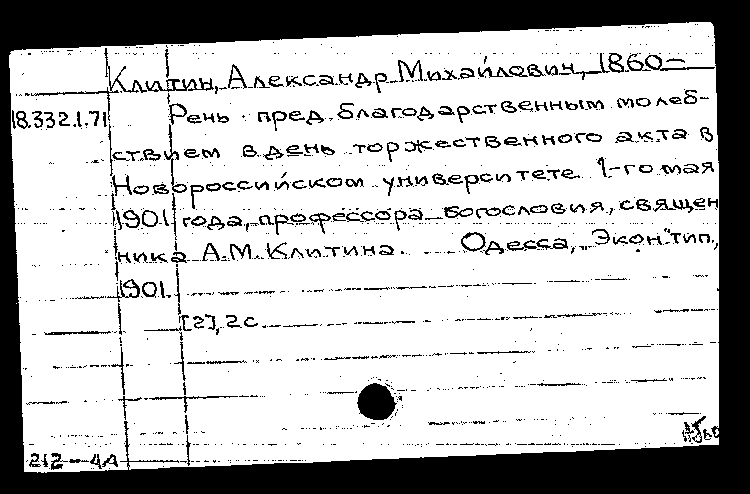 Клитин, Александр Михайлович, 1860-
18.332.1.71 Речь пред благодарственным молеб-
ствием в день торжественного акта в
Новороссийском университете 1-го мая
1901 года, профессора богословия, священ
ника А.М. Клитина. Одесса, "Экон." тип.,
1901.
[2], 2 с.
212-4А